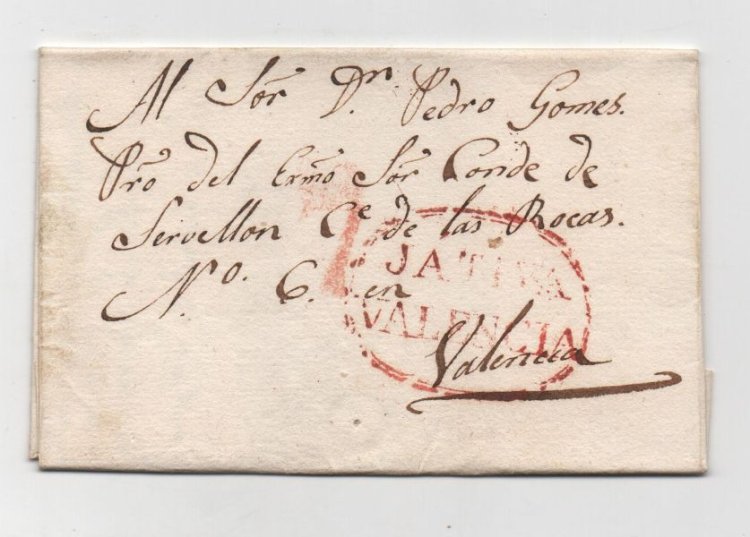 Al Sōr Dn. Pedro Gomes.
Pro del Exmo Sōr Conde de
Servellon Ce de las Rocas.
No. 6. en
Valencia
JATIVA
VALENCIA